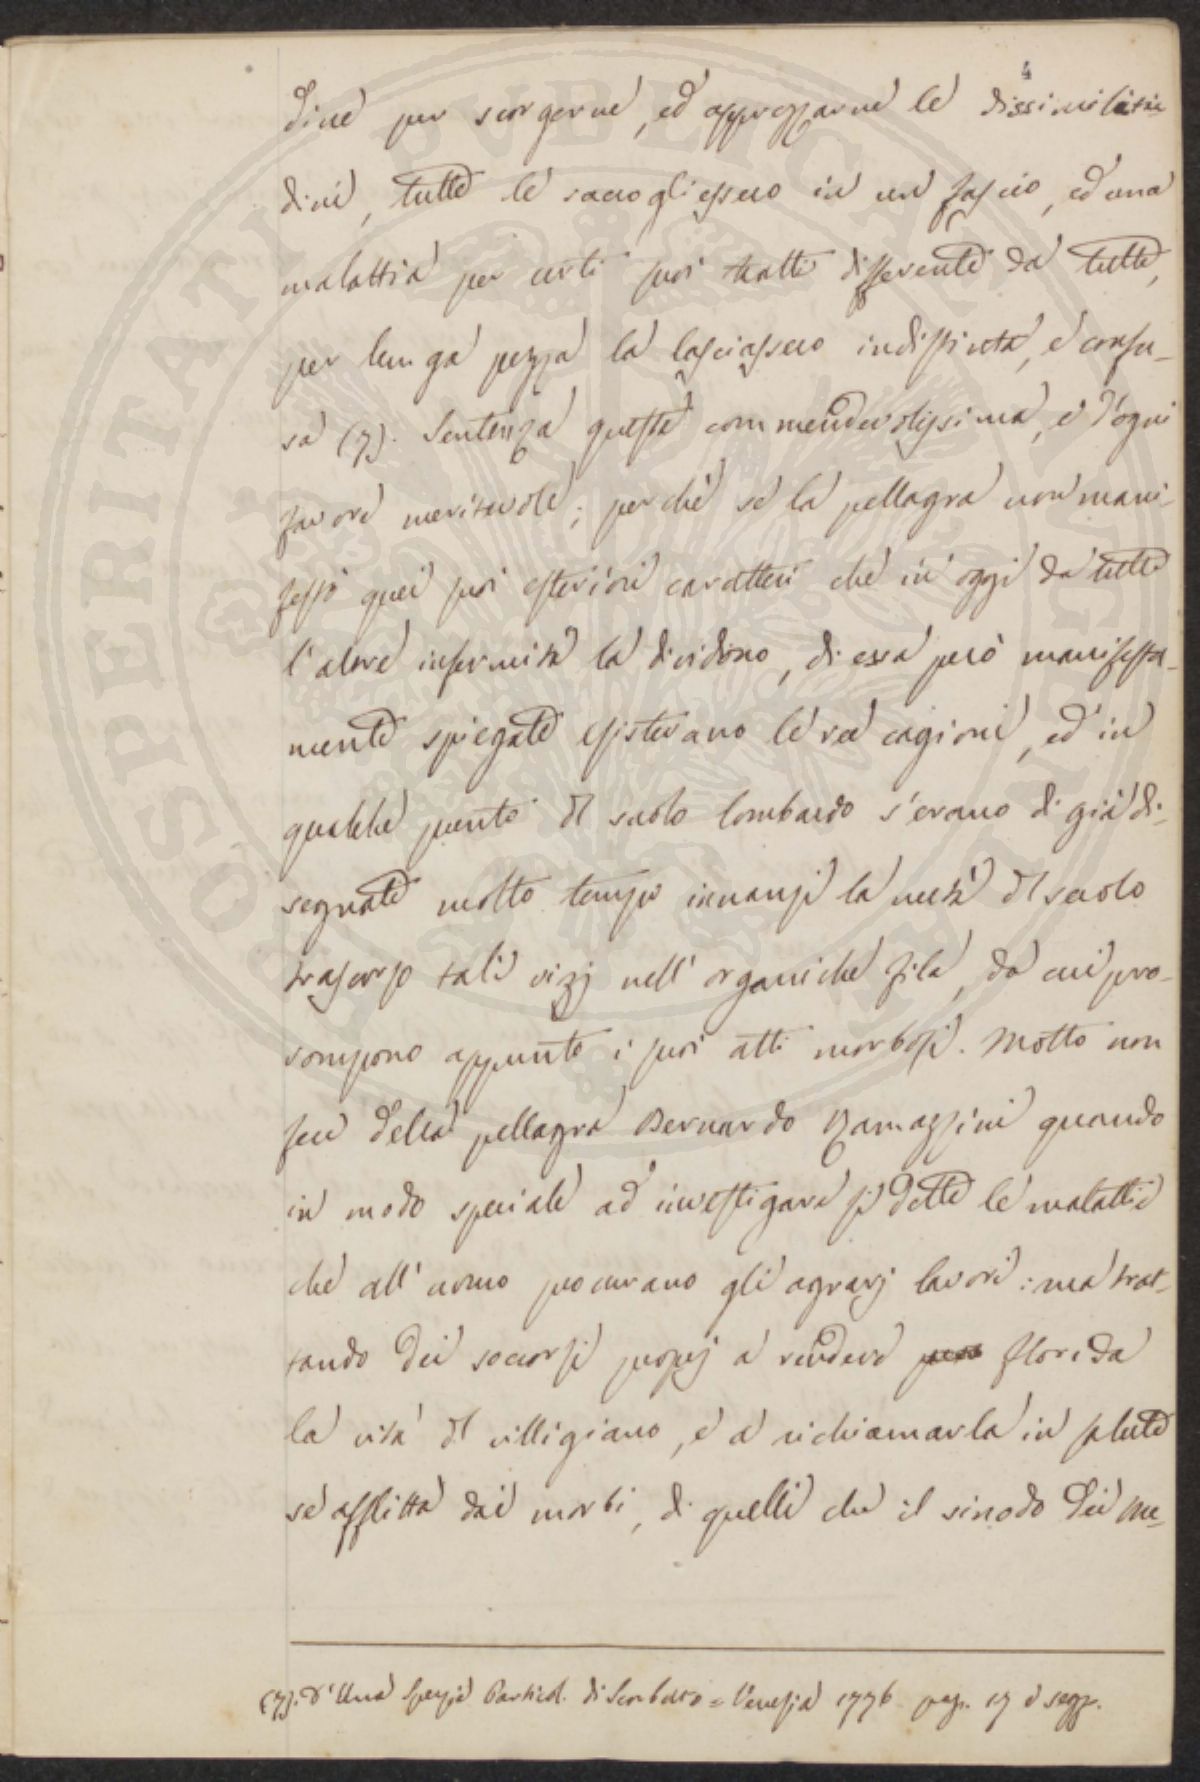 4
dine per scorgerne, ed apprezzarne le dissimilitu-
dini, tutte le raccogliessero in un fascio, ed una
malattia per certi suoi tratti differente da tutte,
per lunga pezza la lasciassero indistinta, e confu-
sa (7). Sentenza questa commendevolissima, e d'ogni
favore meritevole; perchè se la pellagra non mani-
festò quei suoi esteriori caratteri che in oggi da tutte
l'altre infermità la dividono, di essa però manifesta-
mente spiegate esistevano le ree cagioni, ed in
qualche punto del suolo lombardo s'erano di già di-
segnate molto tempo innanzi la metà del secolo
trascorso tali vizj nell'organiche fila, da cui pro-
rompono appunto i suoi atti morbosi. Motto non
fece della pellagra Bernardo Ramazzini quando
in modo speciale ad investigare si dette le malattie
che all'uomo procurano gli agrarj lavori: ma trat-
tando dei soccorsi proprj a rendere florida
la vita del villigiano, e a richiamarla in salute
se afflitta dai morbi, di quelli che il sinodo dei me-
(7). D'Una Spezie Particol. di Scorbuto = Venezia 1776 pag. 17 e segg.
PROSPERITATI PVBLICAE AVGENDAE